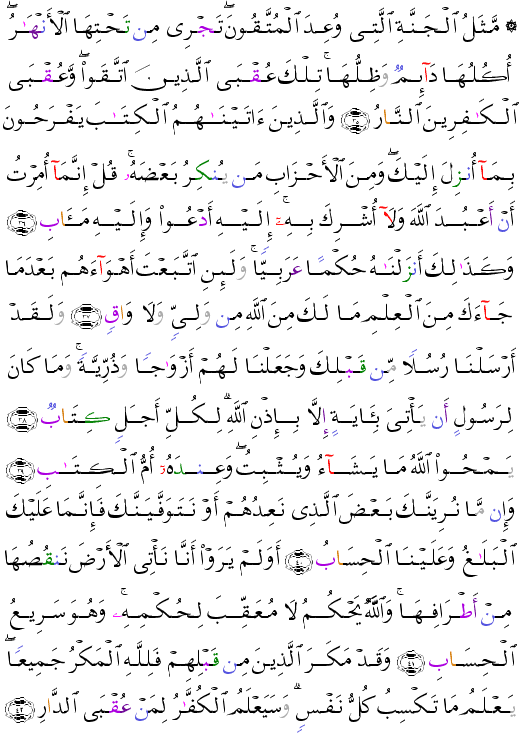 ۞ مَّثَلُ ٱلْجَنَّةِ ٱلَّتِى وُعِدَ ٱلْمُتَّقُونَ ۖ تَجْرِى مِن تَحْتِهَا ٱلْأَنْهَـٰرُ ۖ
أُكُلُهَا دَآئِمٌ وَظِلُّهَا ۚ تِلْكَ عُقْبَى ٱلَّذِينَ ٱتَّقَوا۟ ۖ وَّعُقْبَى
ٱلْكَـٰفِرِينَ ٱلنَّارُ ﴿٣٥﴾ وَٱلَّذِينَ ءَاتَيْنَـٰهُمُ ٱلْكِتَـٰبَ يَفْرَحُونَ
بِمَآ أُنزِلَ إِلَيْكَ ۖ وَمِنَ ٱلْأَحْزَابِ مَن يُنكِرُ بَعْضَهُۥ ۚ قُلْ إِنَّمَآ أُمِرْتُ
أَنْ أَعْبُدَ ٱللَّهَ وَلَآ أُشْرِكَ بِهِۦٓ ۚ إِلَيْهِ أَدْعُوا۟ وَإِلَيْهِ مَـَٔابِ ﴿٣٦﴾
وَكَذَٰلِكَ أَنزَلْنَـٰهُ حُكْمًا عَرَبِيًّا ۚ وَلَئِنِ ٱتَّبَعْتَ أَهْوَآءَهُم بَعْدَمَا
جَآءَكَ مِنَ ٱلْعِلْمِ مَا لَكَ مِنَ ٱللَّهِ مِن وَلِىٍّ وَلَا وَاقٍ ﴿٣٧﴾ وَلَقَدْ
أَرْسَلْنَا رُسُلًا مِّن قَبْلِكَ وَجَعَلْنَا لَهُمْ أَزْوَٰجًا وَذُرِّيَّةً ۚ وَمَا كَانَ
لِرَسُولٍ أَن يَأْتِىَ بِـَٔايَةٍ إِلَّا بِإِذْنِ ٱللَّهِ ۗ لِكُلِّ أَجَلٍ كِتَابٌ ﴿٣٨﴾
يَمْحُوا۟ ٱللَّهُ مَا يَشَآءُ وَيُثْبِتُ ۖ وَعِندَهُۥٓ أُمُّ ٱلْكِتَـٰبِ ﴿٣٩﴾
وَإِن مَّا نُرِيَنَّكَ بَعْضَ ٱلَّذِى نَعِدُهُمْ أَوْ نَتَوَفَّيَنَّكَ فَإِنَّمَا عَلَيْكَ
ٱلْبَلَـٰغُ وَعَلَيْنَا ٱلْحِسَابُ ﴿٤٠﴾ أَوَلَمْ يَرَوْا۟ أَنَّا نَأْتِى ٱلْأَرْضَ نَنقُصُهَا
مِنْ أَطْرَافِهَا ۚ وَٱللَّهُ يَحْكُمُ لَا مُعَقِّبَ لِحُكْمِهِۦ ۚ وَهُوَ سَرِيعُ
ٱلْحِسَابِ ﴿٤١﴾ وَقَدْ مَكَرَ ٱلَّذِينَ مِن قَبْلِهِمْ فَلِلَّهِ ٱلْمَكْرُ جَمِيعًا ۖ
يَعْلَمُ مَا تَكْسِبُ كُلُّ نَفْسٍ ۗ وَسَيَعْلَمُ ٱلْكُفَّـٰرُ لِمَنْ عُقْبَى ٱلدَّارِ ﴿٤٢﴾